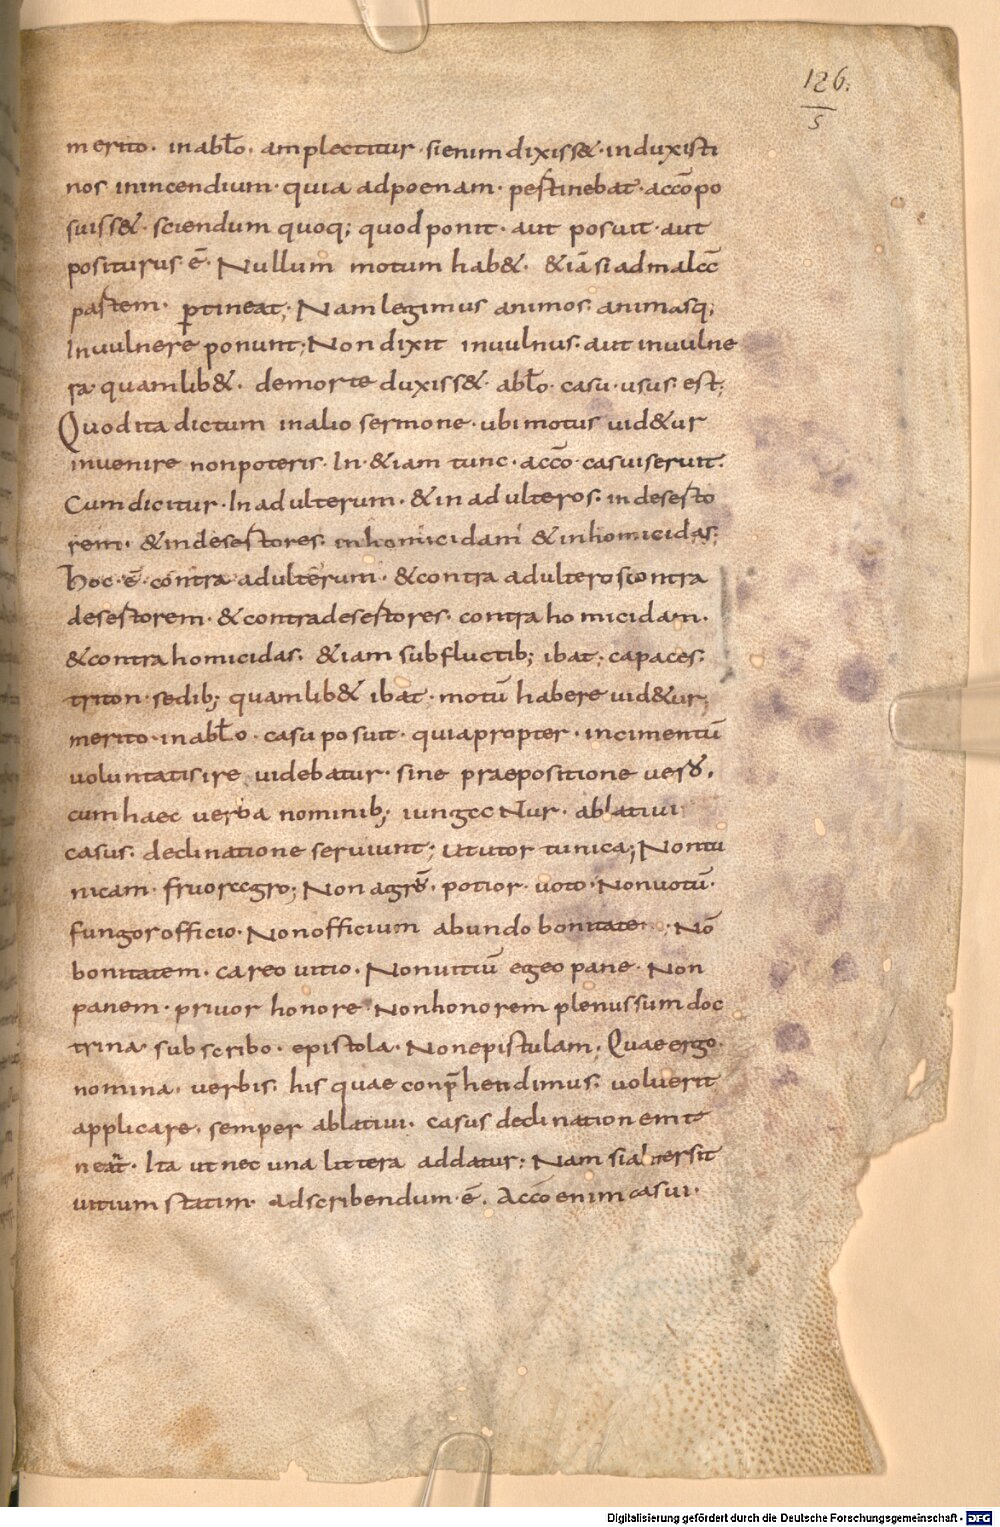 126.
5
merito. inabl̄o. amplectitur. sienim dixiss&. induxisti
nos inincendium. quia adpoenam. pertinebat. acc̄o po
suiss&. sciendum quoq; quod ponit. aut posuit. aut
positurus ē. Nullum motum hab&. &iā si ad malcc̄
partem. ꝑtineat; Nam legimus animos. animasq;
Inuulnere ponunt; Non dixit inuulnus. aut inuulne
ra. quamlib&. demorte duxiss&. abl̄o. casu. usus est;
Quod ita dictum inalio sermone. ubi motus uid&ur
inuenire nonpoteris. In. &iam tunc. acc̄o. casui seruit.
Cum dicitur. In adulterum. &in adulteros. in deserto
rem. &indesertores. inhomicidam &inhomicidas;
hoc. ē. contra adulterum. &contra adulteros contra
desertorem. &contra desertores. contra homicidam.
&contra homicidas. &iam sub fluctib; ibat; capaces.
triton. sedib; quamlib& ibat. motū habere uid&ur;
merito. in abl̄o. casu posuit. quia propter. incimentū
uoluntatis ire uidebatur. sine praepositione uero.
cum haec uerba nominib; iungccNtur. ablatiui
casus. declinatione seruiunt; Ututor tunica; Nontu
nicam. fruor ccgro; Non agrū. potior. uoto. Nonuotū.
fungor officio. Non officium abundo bonitate. Nō
bonitatem. careo uitio. Non uitiū egeo pane. Non
panem. priuor honore Nonhonorem plenus sum doc
trina. subscribo. epistola. Nonepistulam; Quae ergo.
nomina. uerbis. his quae conp̄hendimus. uoluerit
applicare. semper ablatiui. casus declinationem te
neat. Ita ut nec una littera addatur; Nam si
uitium statim adscribendum. ē. Acc̄o enim casui.
Digitalisierung gefördert durch die Deutsche Forschungsgemeinschaft - DFG